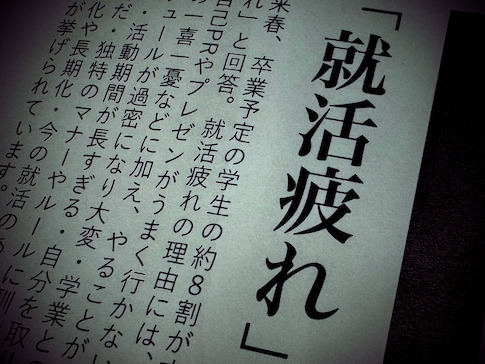 「就活疲れ」
来春、卒業予定の学生の約8割が
れ」と回答。就活疲れの理由には、
自己PRやプレゼンがうまく行かない
の一喜一憂などに加え、やることが
ュールが過密になり大変・学業と
・活動期間が長すぎる・自分を取
だ・独特のマナーやルールに馴
化や長期化・今の就活の
が挙げられています。